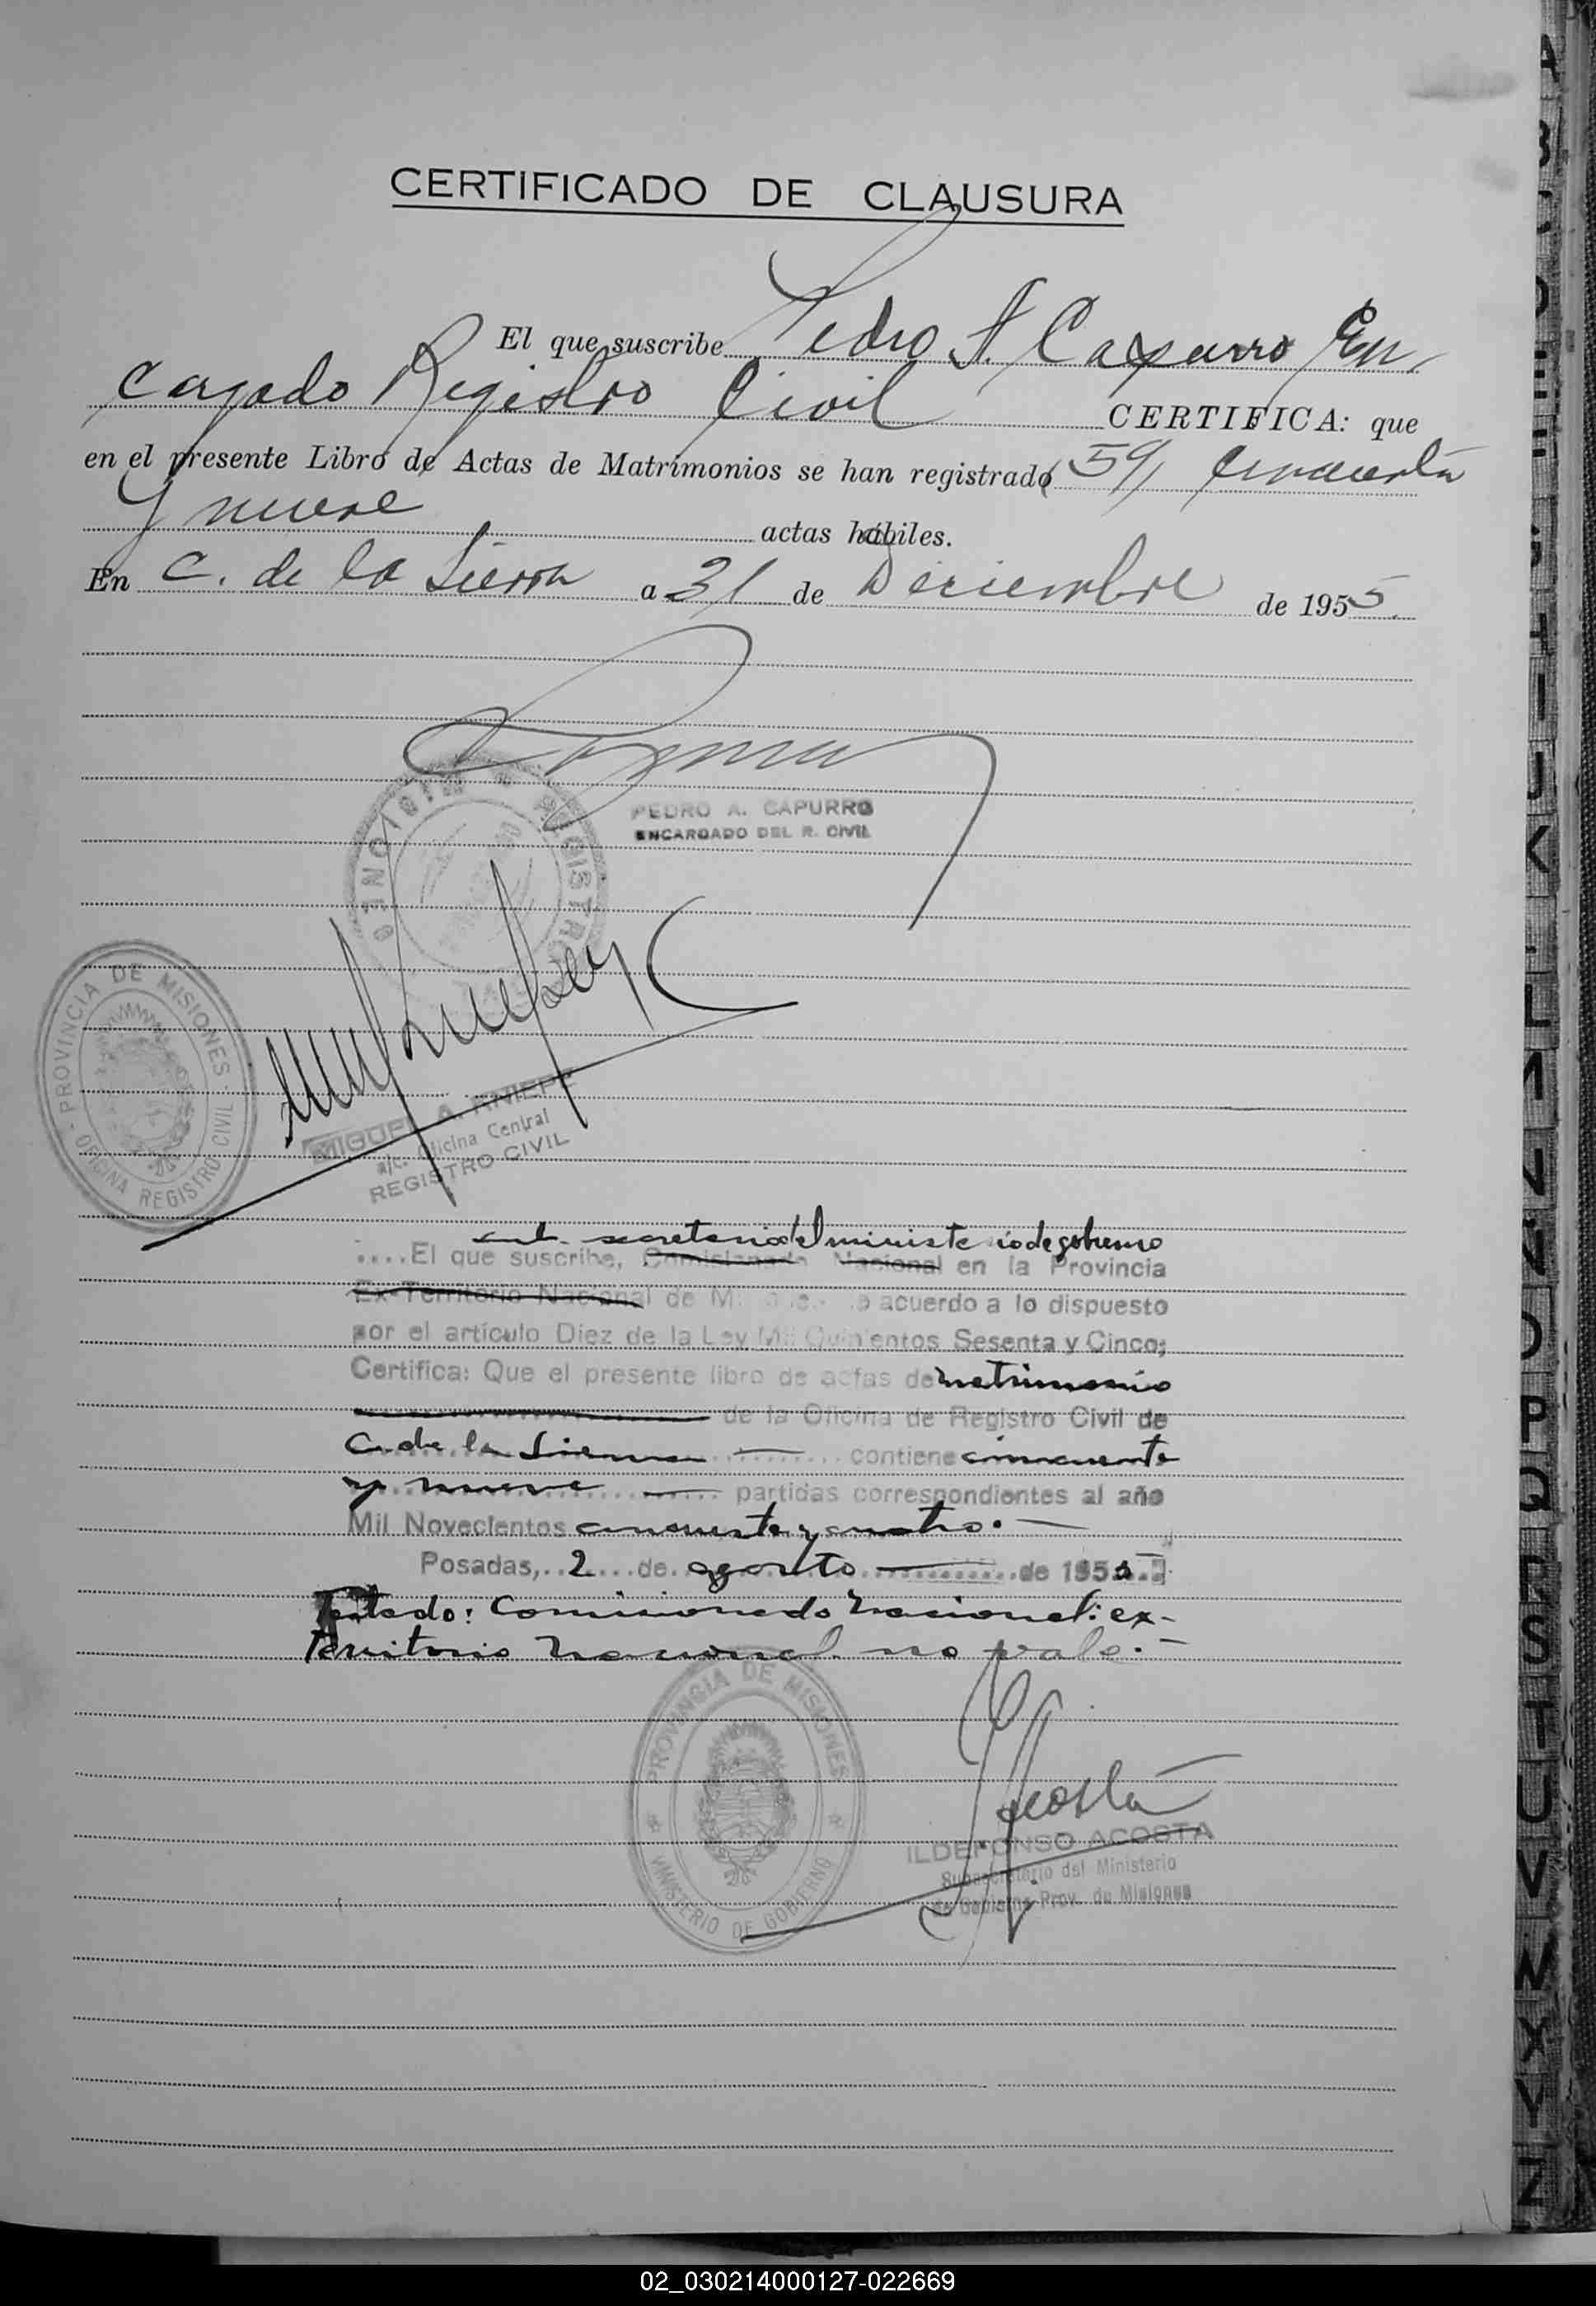 CERTIFICADO DE CLAUSURA
El que suscribe Pedro A. Capurro En,
cargado Registro Civil CERTIFICA: que
en el presente Libro de Actas de Matrimonios se han registrado 59/ cincuenta
y nueve actas hábiles.
En C. de la Sierra a 31 de Diciembre de 1955
PEDRO A. CAPURRO
ENCARGADO DEL R. CIVIL
REGISTRO
PROVINCIA DE MISIONES
OFICINA REGISTRO CIVIL
MIGUEL A. KNIEPE
a/c. Oficina Central
REGISTRO CIVIL
sub-secretario del ministerio de gobierno
....El que suscribe, Comisionado Nacional en la Provincia
Ex-Territorio Nacional de Misiones de acuerdo a lo dispuesto
por el artículo Diez de la Ley Mil Quinientos Sesenta y Cinco;
Certifica: Que el presente libro de actas de matrimonio
de la Oficina de Registro Civil de
C. de la Sierra contiene cincuenta
y nueve partidas correspondientes al año
Mil Novecientos cincuenta y cuatro.-
Posadas, 2 de agosto de 195
Testado: Comisionado Nacional: ex-
Territorio Nacional no vale.-
PROVINCIA DE MISIONES
MINISTERIO DE GOBIERNO
Acosta
ILDEFONSO ACOSTA
Subsecretario del Ministerio
de Gobierno Prov. de Misiones
A
B
C
D
E
F
G
H
I
J
K
L
M
N
O
P
Q
R
S
T
U
V
W
X
Y
Z
02_030214000127-022669